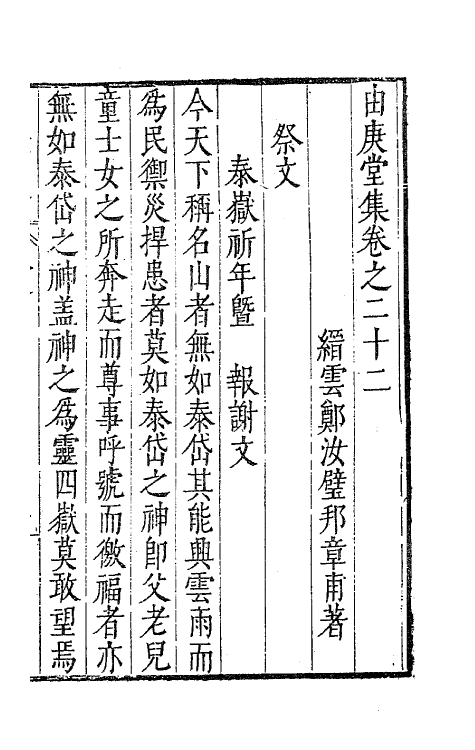 由庚堂集卷之二十二
縉雲鄭汝璧邦章甫著
祭文
泰嶽祈年暨　報謝文
今天下稱名山者無如泰岱其能興雲雨而
爲民禦災捍患者莫如泰岱之神即父老兒
童士女之所奔走而尊事呼號而徼福者亦
無如泰岱之神盖神之爲靈四嶽莫敢望焉